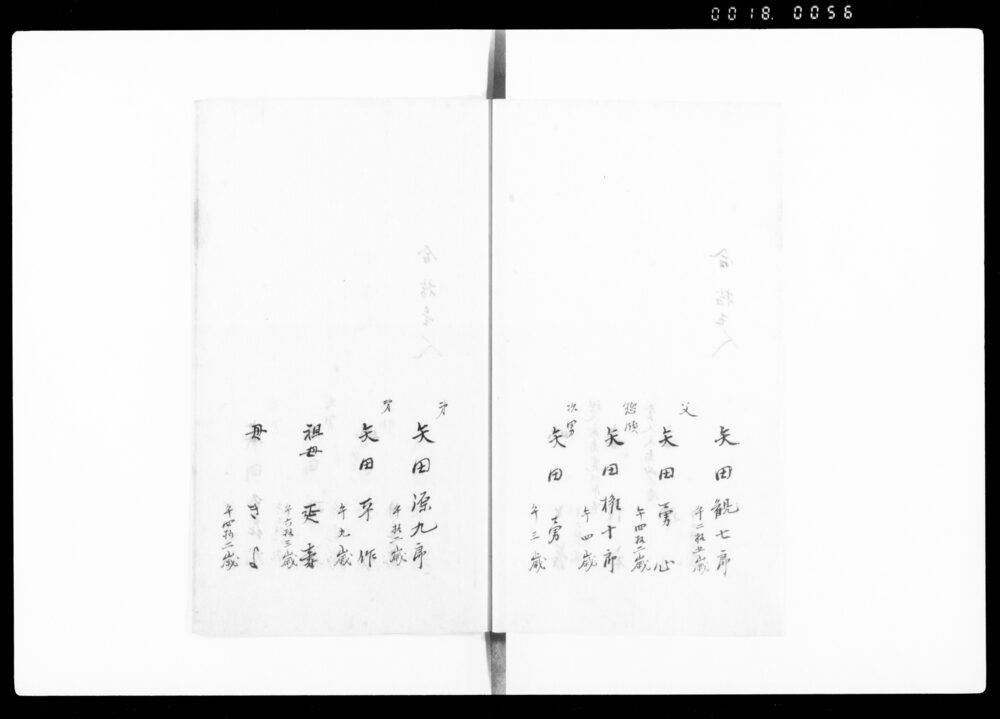 0018. 0056
矢田観七郎
午二拾五歳
父
矢田勇心
午四拾二歳
惣領
矢田権十郎
午四歳
次男
矢田勇
午三歳
弟
矢田源九郎
午拾一歳
弟
矢田平作
午九歳
祖母 延寿
午六拾三歳
母 きよ
午四拾二歳